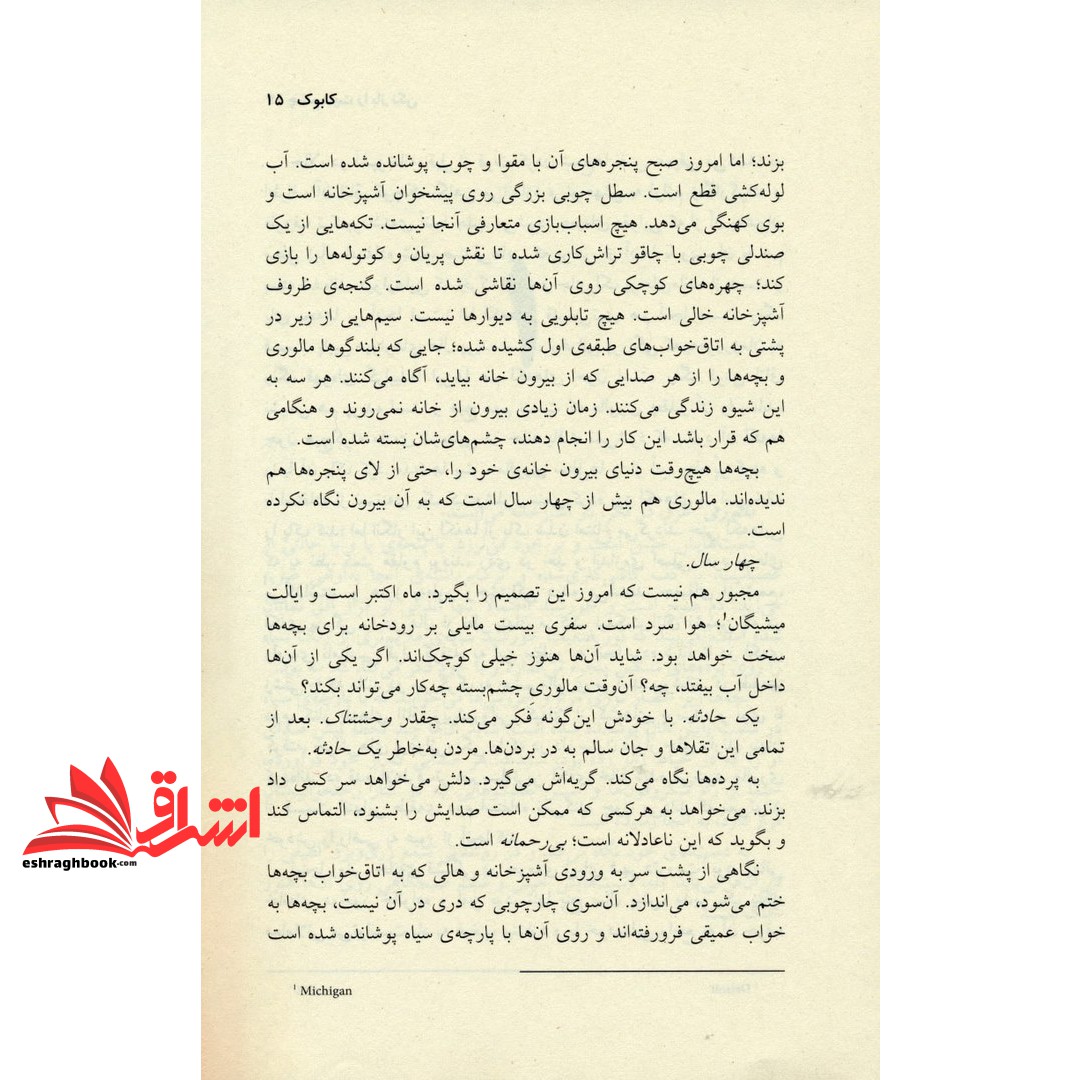 کابوک ۱۵
بزند؛ اما امروز صبح پنجره‌های آن با مقوا و چوب پوشانده شده است. آب
لوله‌کشی قطع است. سطل چوبی بزرگی روی پیشخوان آشپزخانه است و
بوی کهنگی می‌دهد. هیچ اسباب‌بازی متعارفی آنجا نیست. تکه‌هایی از یک
صندلی چوبی با چاقو تراش‌کاری شده تا نقش پریان و کوتوله‌ها را بازی
کند؛ چهره‌های کوچکی روی آن‌ها نقاشی شده است. گنجه‌ی ظروف
آشپزخانه خالی است. هیچ تابلویی به دیوارها نیست. سیم‌هایی از زیر در
پشتی به اتاق‌خواب‌های طبقه‌ی اول کشیده شده؛ جایی که بلندگوها مالوری
و بچه‌ها را از هر صدایی که از بیرون خانه بیاید، آگاه می‌کنند. هر سه به
این شیوه زندگی می‌کنند. زمان زیادی بیرون از خانه نمی‌روند و هنگامی
هم که قرار باشد این کار را انجام دهند، چشم‌های‌شان بسته شده است.
بچه‌ها هیچ‌وقت دنیای بیرون خانه‌ی خود را، حتی از لای پنجره‌ها هم
ندیده‌اند. مالوری هم بیش از چهار سال است که به آن بیرون نگاه نکرده
است.
چهار سال.
مجبور هم نیست که امروز این تصمیم را بگیرد. ماه اکتبر است و ایالت
میشیگان¹؛ هوا سرد است. سفری بیست مایلی بر رودخانه برای بچه‌ها
سخت خواهد بود. شاید آن‌ها هنوز خیلی کوچک‌اند. اگر یکی از آن‌ها
داخل آب بیفتد، چه؟ آن‌وقت مالوریِ چشم‌بسته چه‌کار می‌تواند بکند؟
یک حادثه. با خودش این‌گونه فکر می‌کند. چقدر وحشتناک. بعد از
تمامی این تقلاها و جان سالم به در بردن‌ها. مردن به‌خاطر یک حادثه.
به پرده‌ها نگاه می‌کند. گریه‌اش می‌گیرد. دلش می‌خواهد سر کسی داد
بزند. می‌خواهد به هرکسی که ممکن است صدایش را بشنود، التماس کند
و بگوید که این ناعادلانه است؛ بی‌رحمانه است.
نگاهی از پشت سر به ورودی آشپزخانه و هالی که به اتاق‌خواب بچه‌ها
ختم می‌شود، می‌اندازد. آن‌سوی چارچوبی که دری در آن نیست، بچه‌ها به
خواب عمیقی فرورفته‌اند و روی آن‌ها با پارچه‌ی سیاه پوشانده شده است
¹ Michigan
اشراق
eshraghbook.com